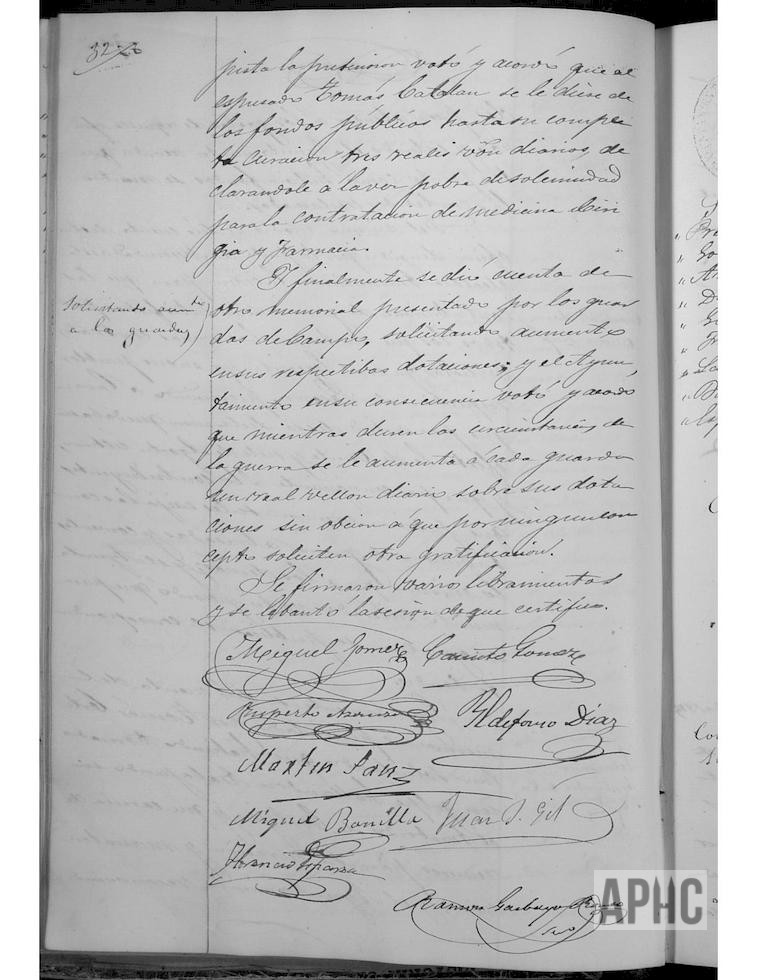 32
justa la pretension votó y acordó que al
espresado Tomás Catalan se le diese de
los fondos públicos hasta su comple
ta curacion tres reales von diarios, de
clarandole á la vez pobre de solemnidad
para la contratacion de medicina Ciru
gia y Farmacia.
Y finalmente se dió cuenta de
solicitando aumto
otro memorial presentado por los guar
a los guardas
das de Campo, solicitando aumento
en sus respectibas dotaciones; y el Ayun
tamiento en su consecuencia votó y acordó
que mientras duren las circunstancias de
la guerra se le aumenta á cada guarda
un real vellon diario sobre sus dota
ciones sin obcion á que por ningun con
cepto soliciten otra gratificacion.
Se firmaron varios libramientos
y se lebantó la sesion de que certifico.
Miguel Gomez Camilo Gomez
Ruperto Ildefonso Diaz
Martin Sanz
Miguel Bonilla Juan S. Gil
Esparza
Ramon
APHC